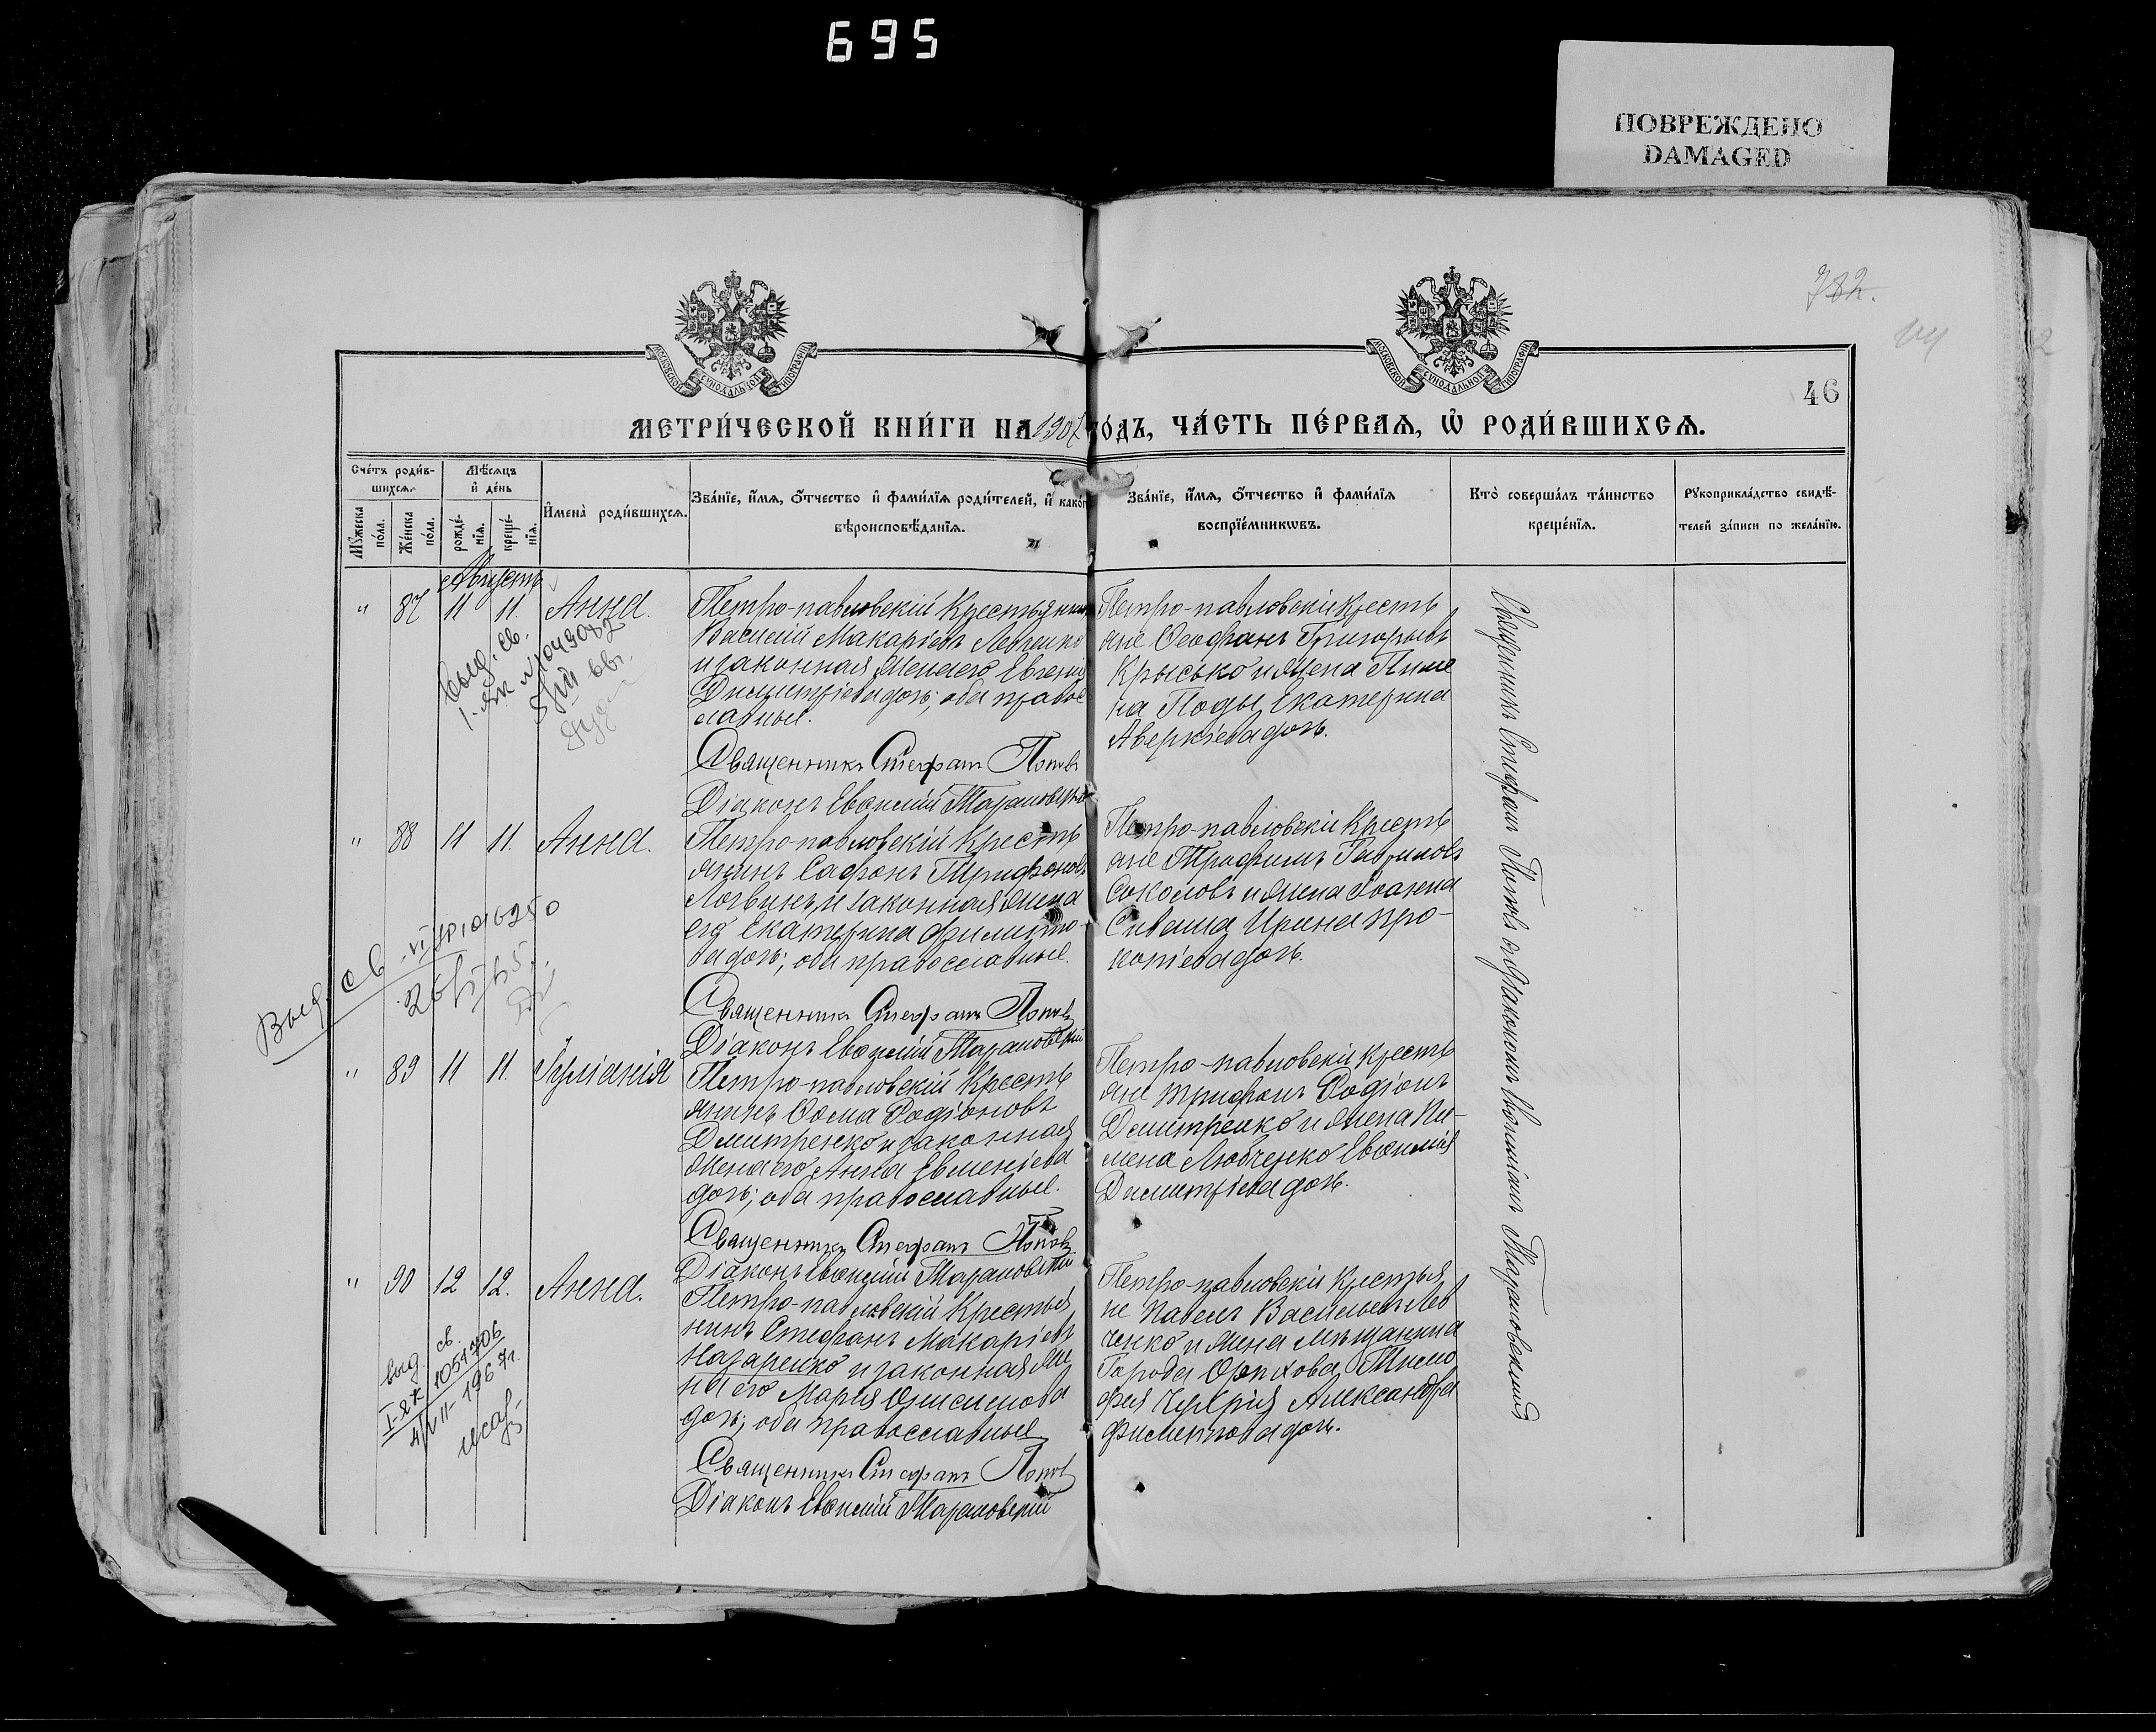 695
ПОВРЕЖДЕНО
DAMAGED
782.
46
МОСКОВСКОЙ СИНОДАЛЬНОЙ ТИПОГРАФІИ
МОСКОВСКОЙ СИНОДАЛЬНОЙ ТИПОГРАФІИ
МЕТРИ́ЧЕСКОЙ КНИ́ГИ НА 1907 ГО́ДЪ, ЧА́СТЬ ПЕ́РВАѦ, Ѡ҆ РОДИ́ВШИХСѦ.
Сче́тъ роди́в-
шихсѧ.
Мꙋ́жеска по́ла.
Же́нска по́ла.
Мѣ́сѧцъ
и҆ де́нь
рожде́-
нїѧ.
креще́-
нїѧ.
И҆мена̀ роди́вшихсѧ.
Зва́нїе, и҆́мѧ, ѻ҆́тчество и҆ фами́лїѧ роди́телей, и҆ како́г
вѣроисповѣ́данїѧ.
Зва́нїе, и҆́мѧ, ѻ҆́тчество и҆ фами́лїѧ
воспрїе́мникѡвъ.
Кто̀ соверша́лъ та́инство
креще́нїѧ.
Рꙋкоприкла́дство свидѣ́-
телей за́писи по жела́нїю.
Августъ
" 87 11 11. Анна.
Петро-павловскій Крестьянин
Василій Макаріевъ Левченко
и законная Жена его Евгенія
Димитріева дочь; оба правос
лавные.
Священникъ Стефанъ Поповъ
Діаконъ Евѳимій Тарановскій
Петро-павловскіе Кресть
яне Ѳеофанъ Григорьевъ
Крысько и Жена Пиме
на Поды Екатерина
Аверкіева дочь.
выд. св.
I-ЯК № 1049082
" 88 11 11. Анна.
Петро-павловскій Кресть
янинъ Сафонъ Трифоновъ
Логвинъ, и законная Жена
его Екатерина Филиппо-
ва дочь; оба православные.
Священникъ Стефанъ Поповъ
Діаконъ Евѳимій Тарановскій
Петро-павловскіе Кресть
яне Трофимъ Гавриловъ
Соколовъ и Жена Іоанна
Сиваша Ирина Про-
копіева дочь.
Выд. св. VI ЯР 1016250
" 89 11 11. Іуліанія
Петро-павловскій Кресть
янинъ Ѳома Родіоновъ
Дмитренко и законная
Жена его Анна Евменіева
дочь; оба православные.
Священникъ Стефанъ Поповъ
Діаконъ Евѳимій Тарановскій
Петро-павловскіе Кресть
яне Трифонъ Родіонъ
Дмитренко и Жена Пи-
мена Любченко Евѳимія
Димитріева дочь.
" 90 12 12. Анна.
Петро-павловскій Крестья
нинъ Стефанъ Макаріевъ
Назаренко и законная Же
на его Марія Онисимова
дочь; оба православные
Священникъ Стефанъ Поповъ
Діаконъ Евѳимій Тарановскій
Петро-павловскіе Крестья
не Павелъ Васильевъ Лев
ченко и Жена мѣщанина
Города Орѣхова Тимо
фея Чухрія Александра
Филиппова дочь.
выд. св.
I-ЯК 1051706
4/VII-1967г.
Священникъ Стефанъ Поповъ съ діакономъ Евѳиміемъ Тарановскимъ